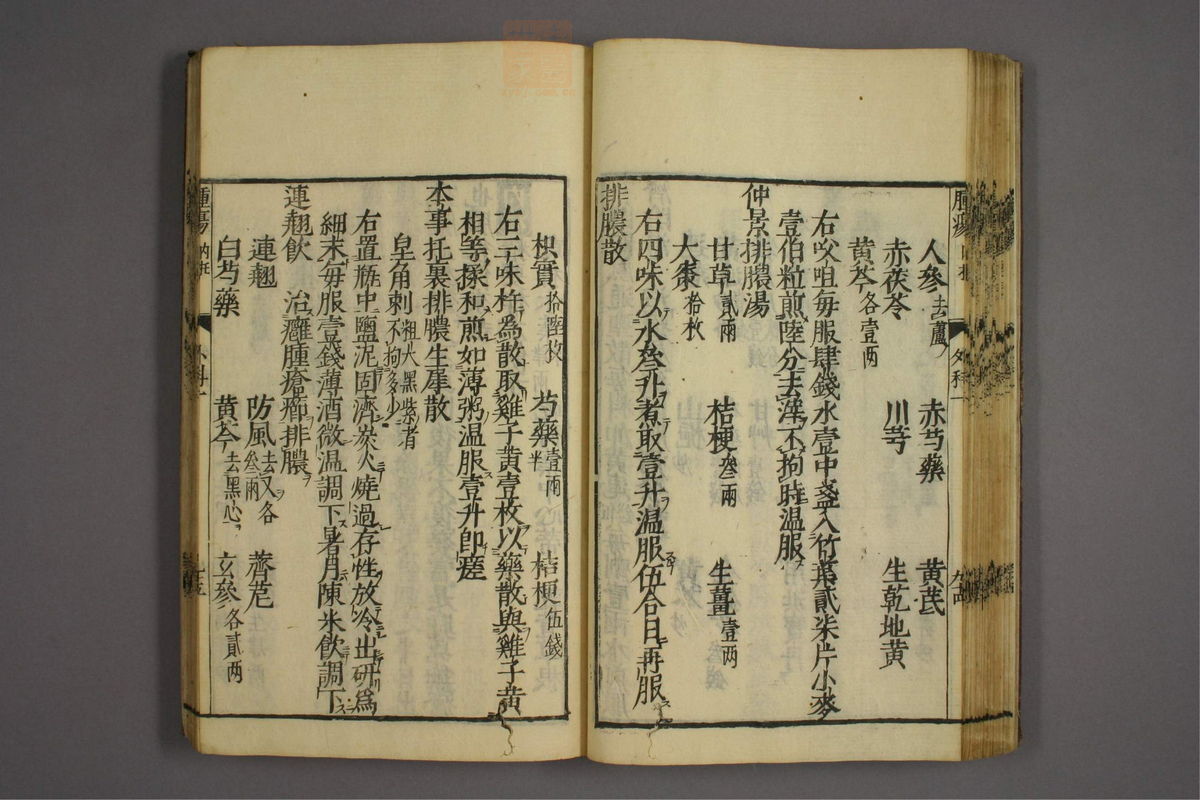 人參去蘆 赤芍藥 黄芪
赤茯苓 川芎 生乾地黄
黄芩各壹两
右㕮咀毎服肆錢水壹中盞入竹葉貳柒片小麥
壹伯粒煎陸分去滓不拘時温服
仲景排膿湯
甘草貳兩 桔梗叄兩 生薑壹两
大棗拾枚
右四味以水叄升煮取壹升温服伍合日再服
排膿散
枳實拾陸枚 芍藥壹兩半 桔梗伍錢
右三味杵為散取雞子黄壹枚以藥散與雞子黄
相等揉和煎如薄粥温服壹升即瘥
本事托裏排膿生犀散
皂角刺粗大黑紫者不拘多少
右置瓶中鹽泥固濟炭火燒過存性放冷出研爲
細末毎服壹錢薄酒微温調下暑月陳米飲調下
連翹飲 治癰腫瘡癤排膿
連翹 防風去叉各叄兩 薺苨
白芍藥 黄芩去黑心 玄參各貳两
腫瘍